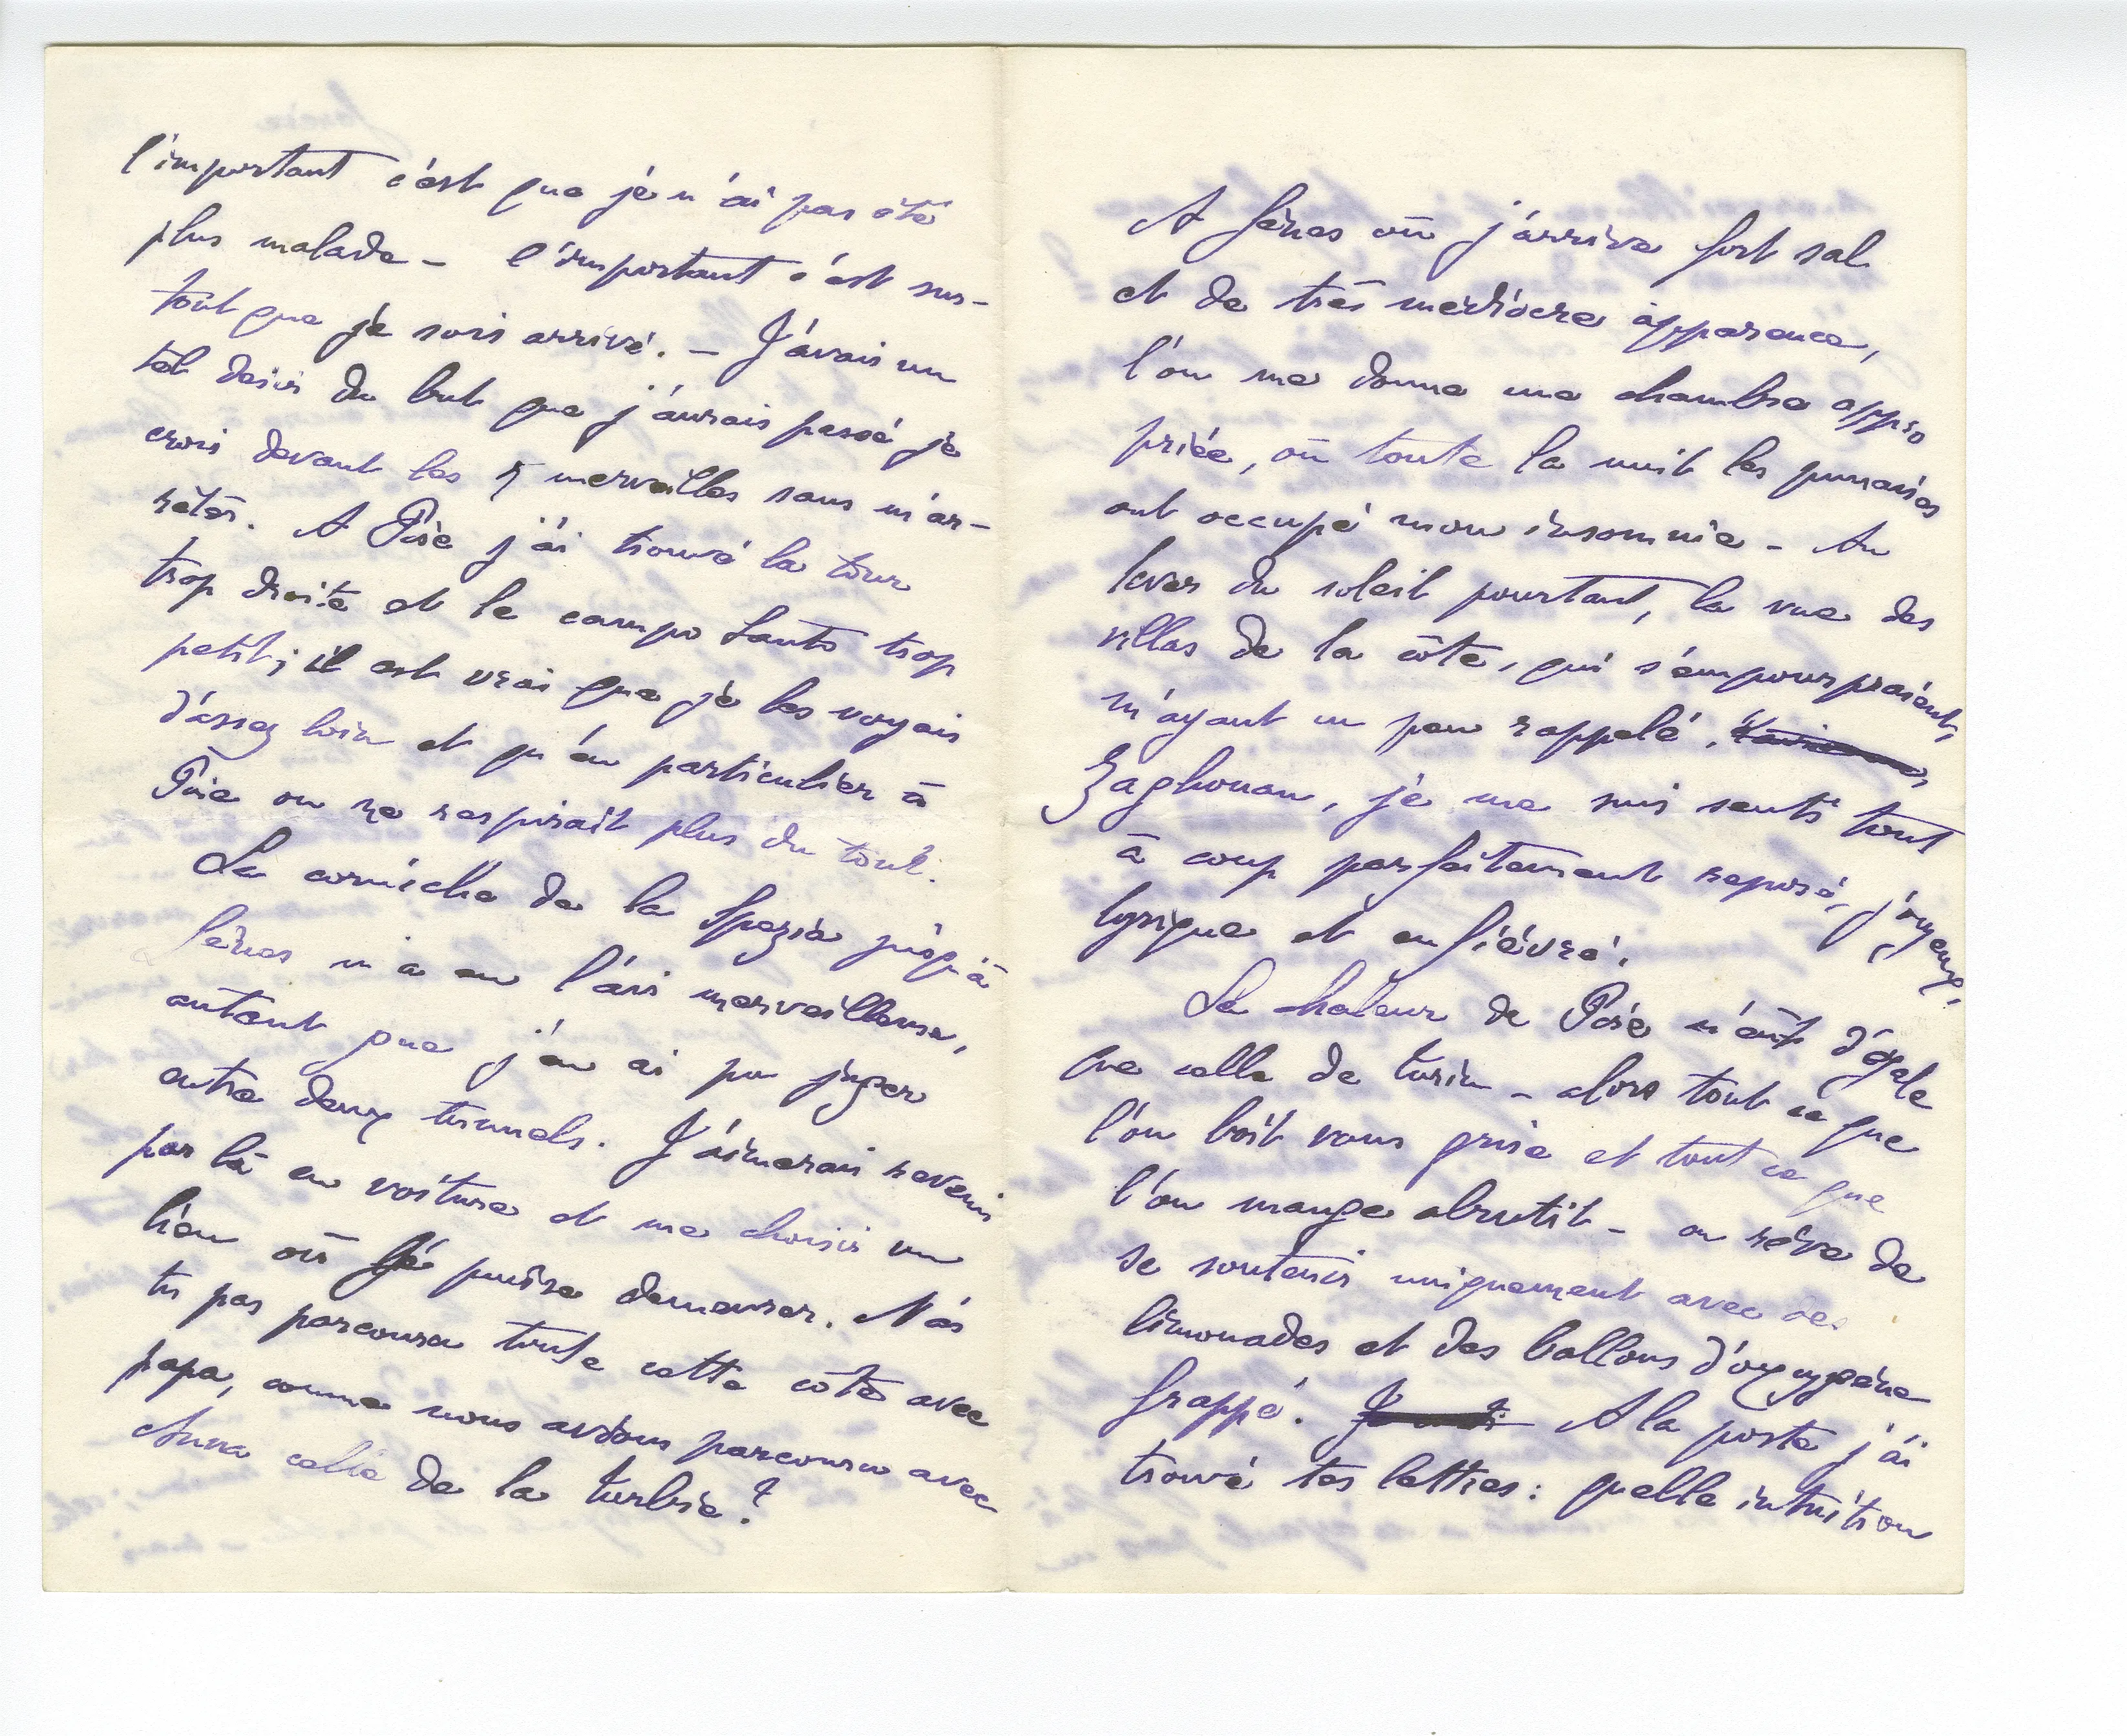 l'important c'est que je n'ai pas été
plus malade – l'important c'est sur-
tout que je sois arrivé. – J'avais un
tel désir du but que j'aurais passé je
crois devant les 7 merveilles sans m'ar-
rêter. A Pise j'ai trouvé la tour
trop droite et le campo Santo trop
petit ; il est vrai que je les voyais
d'assez loin et qu'en particulier à
Pise on ne respirait plus du tout.
La corniche de la Spezia jusqu'à
Gênes m'a eu l'air merveilleuse,
autant que j'en ai pu juger
entre deux tunnels. J'aimerais revenir
par là en voiture et me choisir un
lieu où je puisse demeurer. N'as
tu pas parcouru toute cette côte avec
papa, comme nous avions parcouru avec
Anna celle de la turbie ?
A Gênes où j'arrive fort sale
et de très médiocre apparence,
l'on me donne une chambre appro
priée, où toute la nuit les punaises
ont occupé mon insomnie – Au
lever du soleil pourtant, la vue des
villas de la côte, qui s'empourpraient,
m'ayant un peu rappelé
Zaghouan, je me suis senti tout
à coup parfaitement reposé, joyeux,
lyrique et enfiévré.
La chaleur de Pise n'eût d'égale
que celle de turin – alors tout ce que
l'on boit vous grise et tout ce que
l'on mange abrutit – on rêve de
se soutenir uniquement avec des
limonades et des ballons d'oxygène
frappé. A la poste j'ai
trouvé tes lettres : quelle intuition